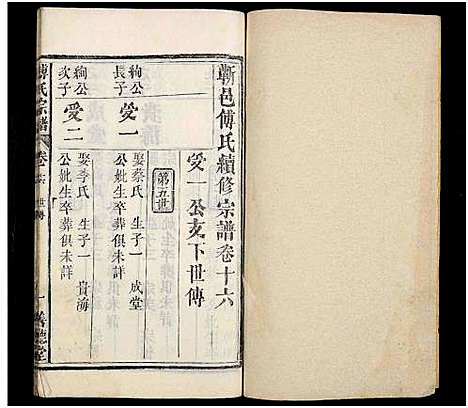 蘄邑傅氏續修宗譜卷十六
受一公支下世傳
第五世
絢公長子
受一
娶蔡氏 生子一 成堂
公妣生卒葬俱未詳
絢公次子
受二
娶李氏 生子一 貴海
公妣生卒葬俱未詳
傅氏宗譜 卷十六 世傳 一 善德堂